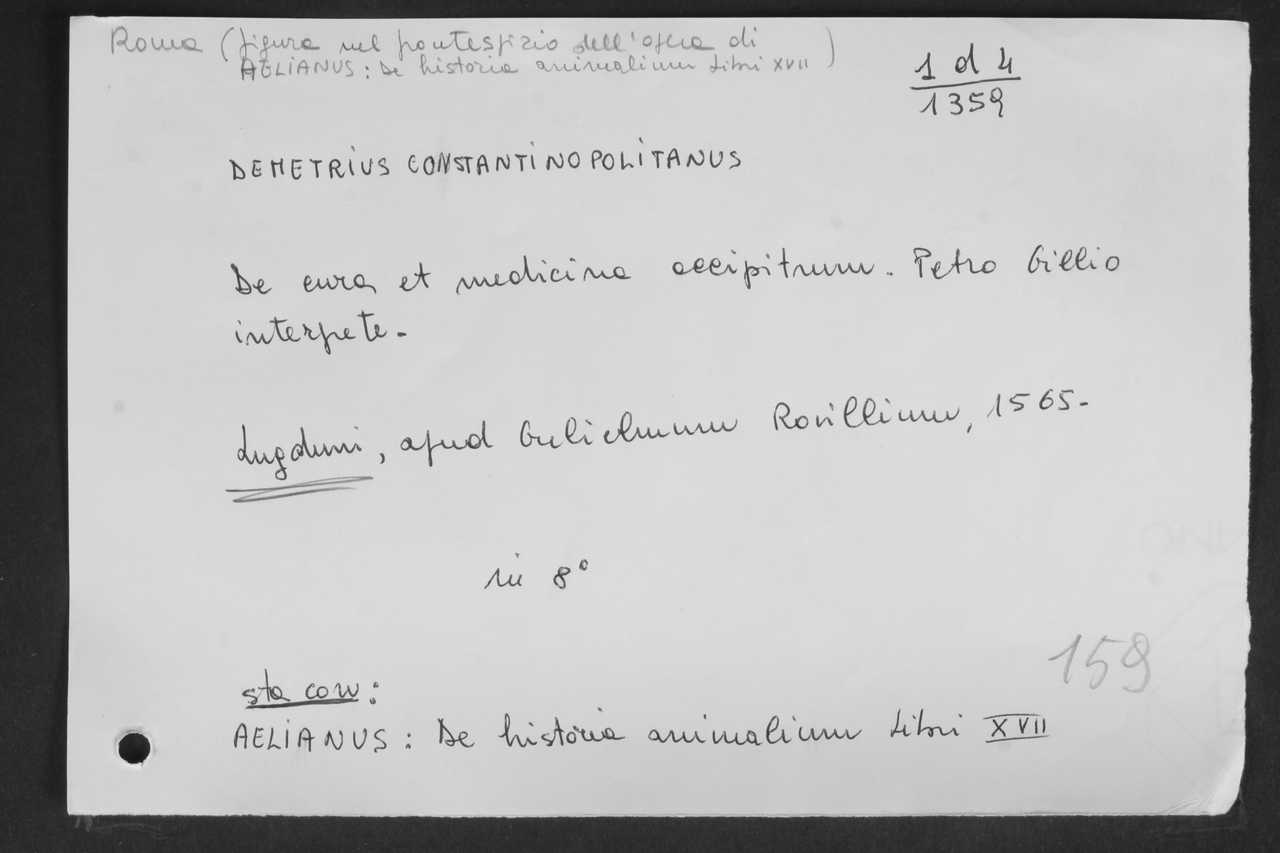 Roma (figura nel frontespizio dell'opera di
AELIANUS: De historia animalium Libri XVII)
1 d 4
1359
DEMETRIUS CONSTANTINOPOLITANUS
De cura et medicina accipitrum. Petro Gillio
interpete.
Lugduni, apud Gulielmum Rovillium, 1565.
in 8°
159
sta con:
AELIANUS: De historia animalium Libri XVII